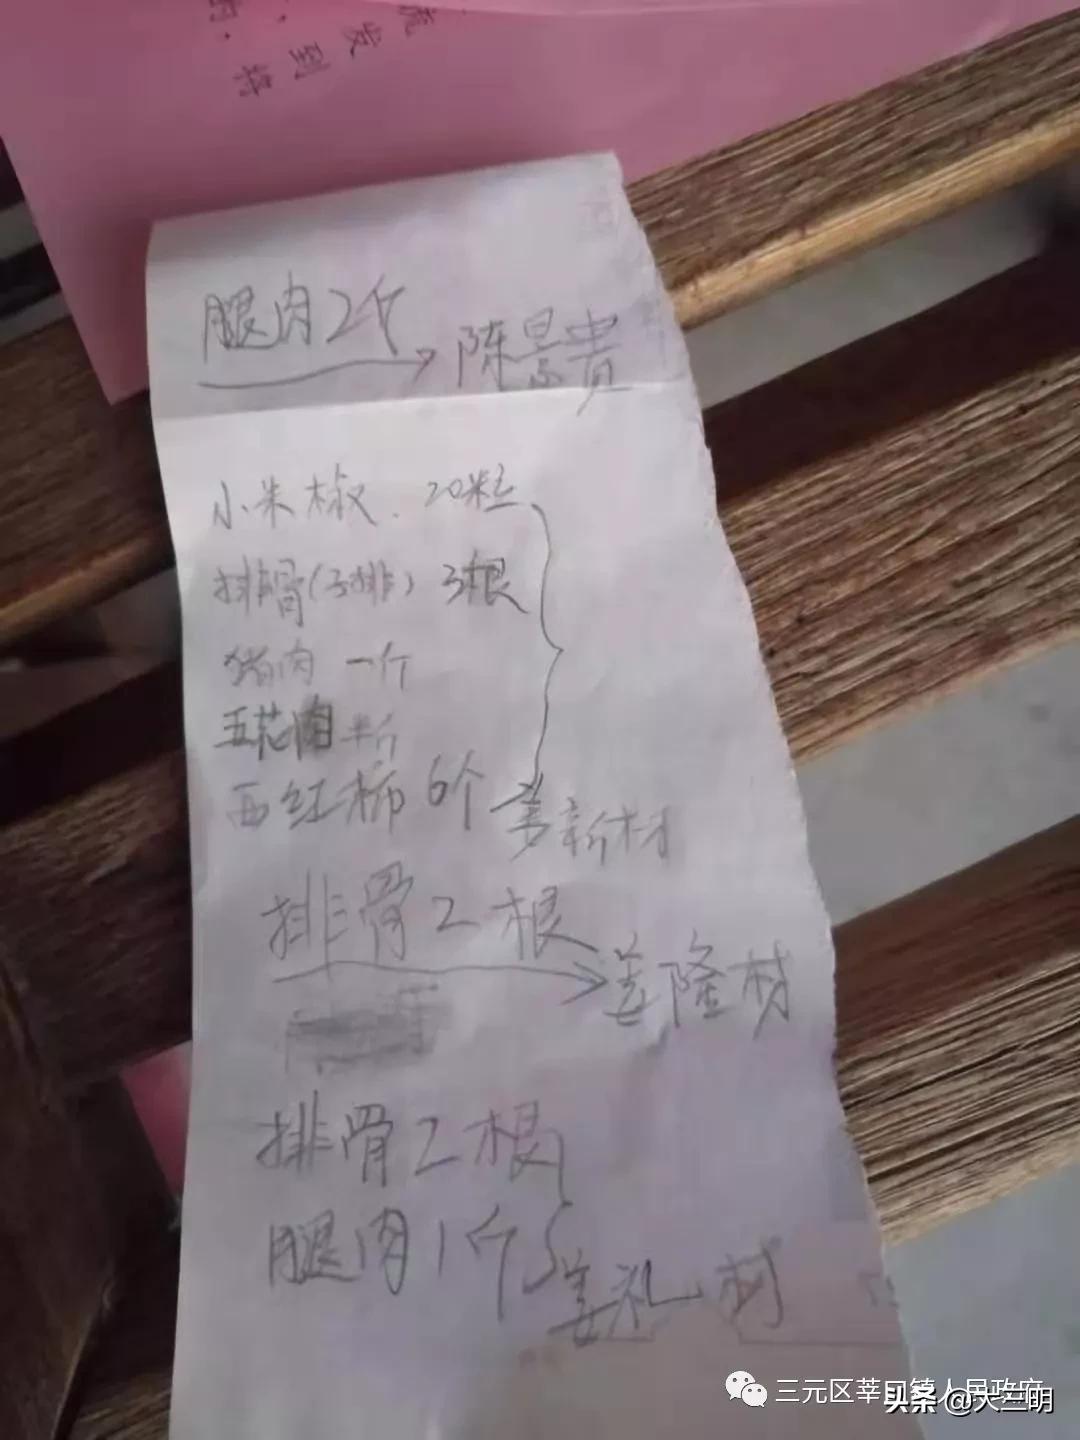 腿肉2斤
陈景贵
小朱椒. 20粒
排骨(子排) 3根
猪肉 一斤
五花肉 半斤
西红柿 6个
姜新材
排骨2根
姜隆材
排骨2根
腿肉1斤
姜礼材
三元区莘口镇人民政府
头条 @大三明